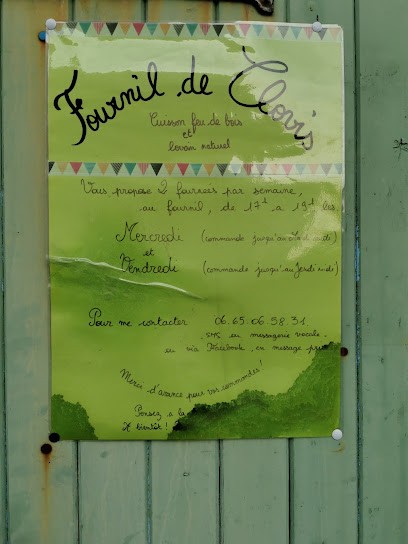 Fournil de Clovis
Cuisson feu de bois
et
levain naturel
Vous propose 2 fournées par semaine,
au fournil, de 17h à 19h les
Mercredi (commande jusqu'au midi)
et
Vendredi (commande jusqu'au Jeudi midi)
Pour me contacter 06.65.06.58.31
SMS ou messagerie vocale.
ou via Facebook, en message privé
Merci d'avance pour vos commandes!
Pensez à
A bientôt!